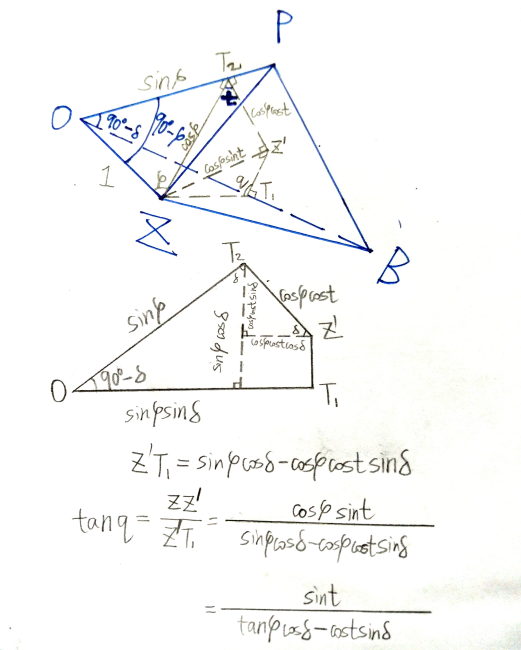 P
T₂
sinφ
t
cosφcost
O
90°-δ
90°-φ
cosφ
cosφsint
Z'
1
φ
q
T₁
Z
B
T₂
δ
cosφcost
sinφ
cosφcostsinδ
sinφcosδ
δ
Z'
cosφcostcosδ
O
90°-δ
T₁
sinφsinδ
Z'T₁ = sinφcosδ-cosφcostsinδ
tanq = ZZ' / Z'T₁ = cosφsint / sinφcosδ-cosφcostsinδ
= sint / tanφcosδ-costsinδ